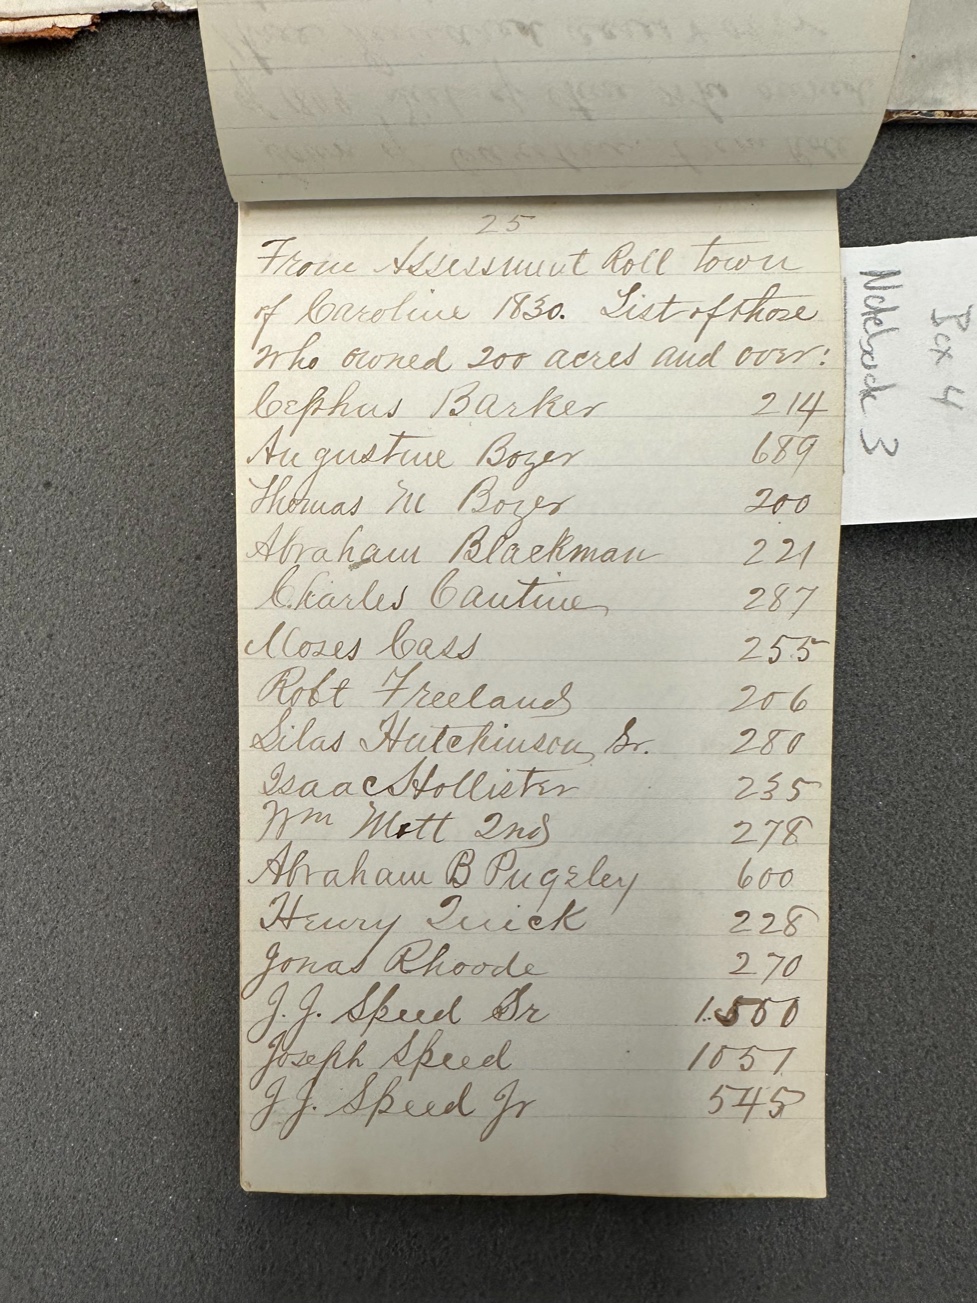 25
From Assessment Roll town
of Caroline 1830. List of those
who owned 200 acres and over:
Cephus Barker 214
Augustine Bozer 689
Thomas M Bozer 200
Abraham Blackman 221
Charles Cantine 287
Moses Cass 255
Robt Freeland 206
Silas Hutchinson, Sr. 280
Isaac Hollister 235
Wm Mott 2nd 278
Abraham B Pugsley 600
Henry Quick 228
Jonas Rhoode 270
J. J. Speed Sr 1.500
Joseph Speed 1057
J J. Speed Jr 545
Box 4
Notebook 3